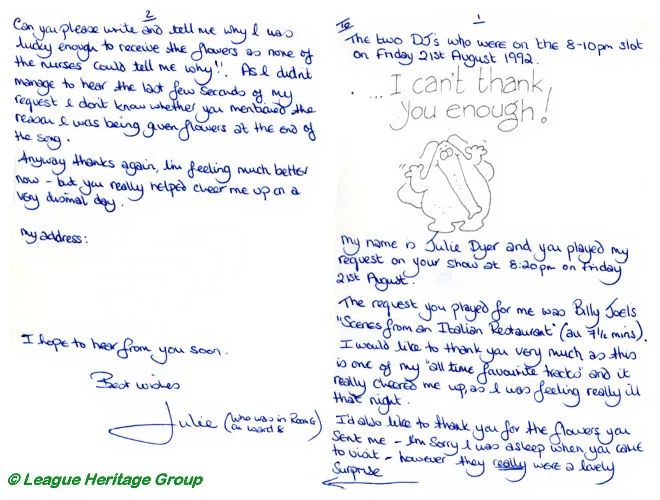 1
To
The two DJ's who were on the 8-10pm slot
on Friday 21st August 1992.
... I can't thank
you enough!
My name is Julie Dyer and you played my
request on your show at 8:20pm on Friday
21st August.
The request you played for me was Billy Joel's
"Scenes from an Italian Restaurant" (all 7½ mins).
I would like to thank you very much as this
is one of my "all time favourite tracks" and it
really cheered me up, as I was feeling really ill
that night.
I'd also like to thank you for the flowers you
sent me - I'm sorry I was asleep when you came
to visit - however they really were a lovely
surprise
2
Can you please write and tell me why I was
lucky enough to receive the flowers as none of
the nurses could tell me why!!. As I didnt
manage to hear the last few seconds of my
request I don't know whether you mentioned the
reason I was being given flowers at the end of
the song.
Anyway thanks again, I'm feeling much better
now - but you really helped cheer me up on a
very dismal day.
My address:
I hope to hear from you soon.
Best wishes
Julie (who was in Room 6
on ward 8
© League Heritage Group